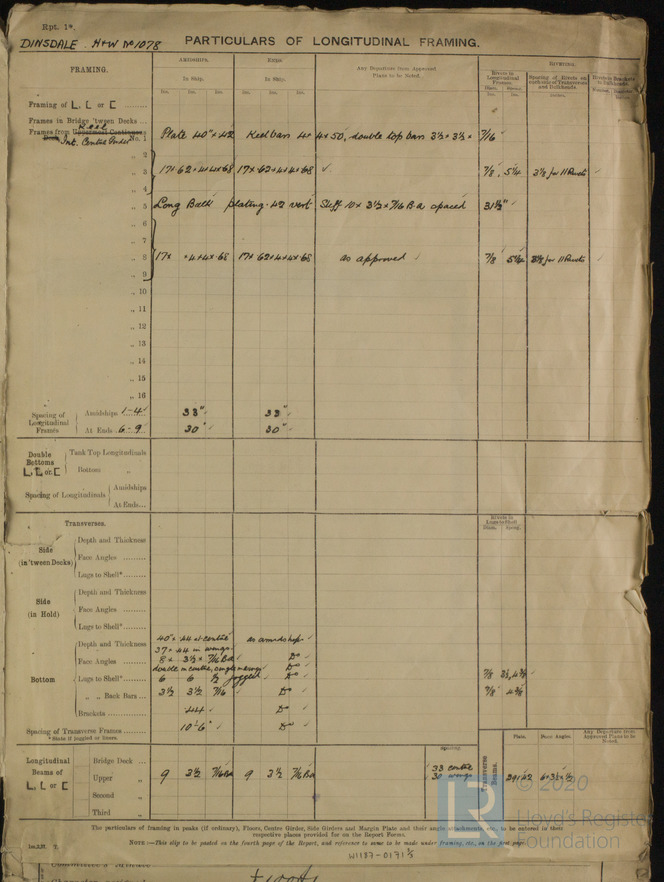 Rpt. 1*.
DINSDALE. H+W No 1078 PARTICULARS OF LONGITUDINAL FRAMING.
FRAMING.
AMIDSHIPS. ENDS. Any Departure from Approved Plans to be Noted.
In Ship. In Ship.
RIVETING.
Rivets in Longitudinal Frames. Spacing of Rivets on each side of Transverses and Bulkheads.
Framing of L, L or C
Frames in Bridge 'tween Decks
Frames from Uppermost Continuous
Int. Centre Girder No. 1 Plate 40" × 42 Keel bars 4 × 4 × 50, double top bars 3½ × 3½ × 7/16"
„ 2
„ 3 17 × 62 × 4 × 4 × 68 17 × 62 × 4 × 4 × 68 ✓ 7/8, 5¼ 3⅛ for 11 Rivets
„ 4
„ 5 Long Bulk plating .42 vert Stiff 10 × 3½ × 7/16 B.a spaced 31½"
„ 6
„ 7
„ 8 17 × × 4 × 4 × 68 17 × 62 × 4 × 4 × 68 as approved 7/8 for 11 Rivets
„ 9
„ 10
„ 11
„ 12
„ 13
„ 14
„ 15
„ 16
Spacing of Longitudinal Frames
Amidships 1-4 33" 33"
At Ends 6-9 30" 30"
Double Bottoms L, L or C
Tank Top Longitudinals
Bottom „
Spacing of Longitudinals
Amidships
At Ends...
Transverses. Rivets in Lugs to Shell
Diam. Spcng.
Side (in 'tween Decks)
Depth and Thickness
Face Angles
Lugs to Shell*
Side (in Hold)
Depth and Thickness
Face Angles
Lugs to Shell*
Bottom
Depth and Thickness 40 × .44 at centre as amidships
37 × .44 in wings
Face Angles 8 × 3½ × 7/16 Ba Do
double in centre, single in wings
Lugs to Shell* 6 6 ½ joggled Do 7/8
„ „ Back Bars 3½ 3½ 7/16 Do 7/8 4⅜
Brackets .44 Do
Spacing of Transverse Frames 10'-6" Do
* State if joggled or liners.
spacing
Plate. Face Angles. Any Departure from Approved Plans to be Noted.
Longitudinal Beams of L, L or C
Bridge Deck
Upper „ 9 3½ 7/16 Ba 9 3½ 7/16 Ba 33 centre 30 wings
Second „
Third „
Transverse Beams.
The particulars of framing in peaks (if ordinary), Floors, Centre Girder, Side Girders and Margin Plate and their angle attachments, etc., to be entered in their
respective places provided for on the Report Forms.
NOTE:—This slip to be pasted on the fourth page of the Report, and reference to same to be made under framing, etc., on the first page.
W1187-0171⅓
© 2020
Lloyd's Register
Foundation